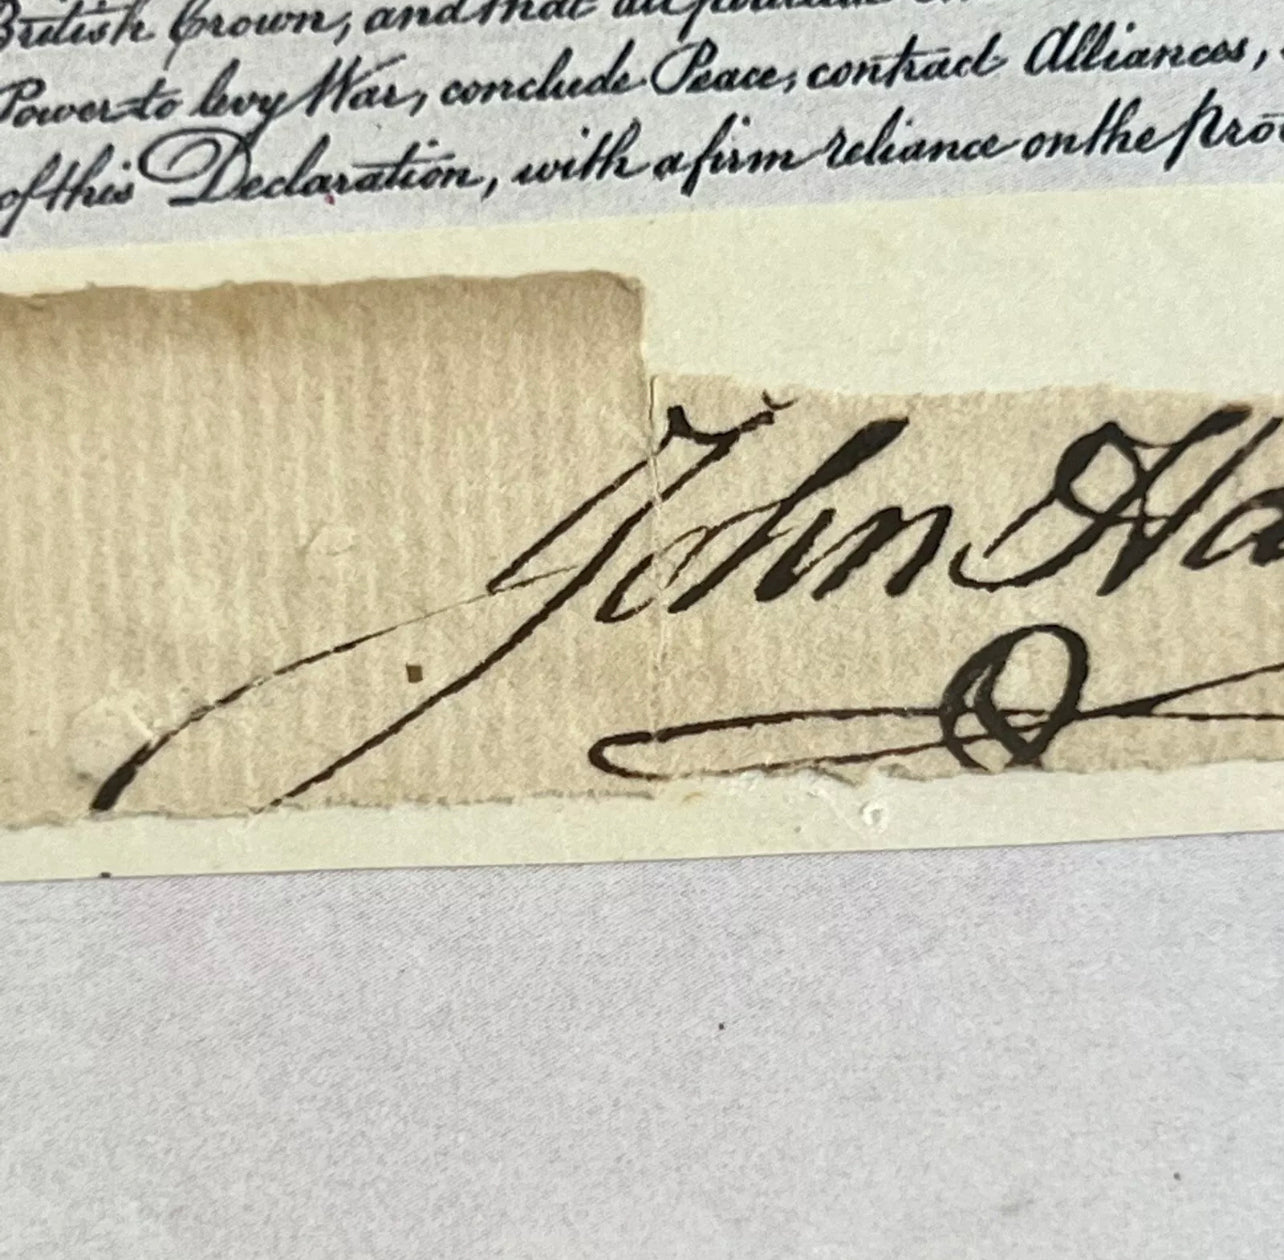 British Crown, and that all
Power to levy War, conclude Peace, contract Alliances,
of this Declaration, with a firm reliance on the pro
John Ha